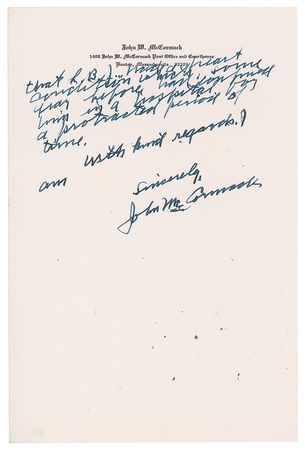 John W. McCormack
1400 John W. McCormack Post Office and Courthouse
Boston, Massachusetts 02109
that L. B. J. had a heart
condition which some
years before had confined
him in a hospital for
a protracted period of
time.
With kind regards, I
am
Sincerely,
John W. McCormack